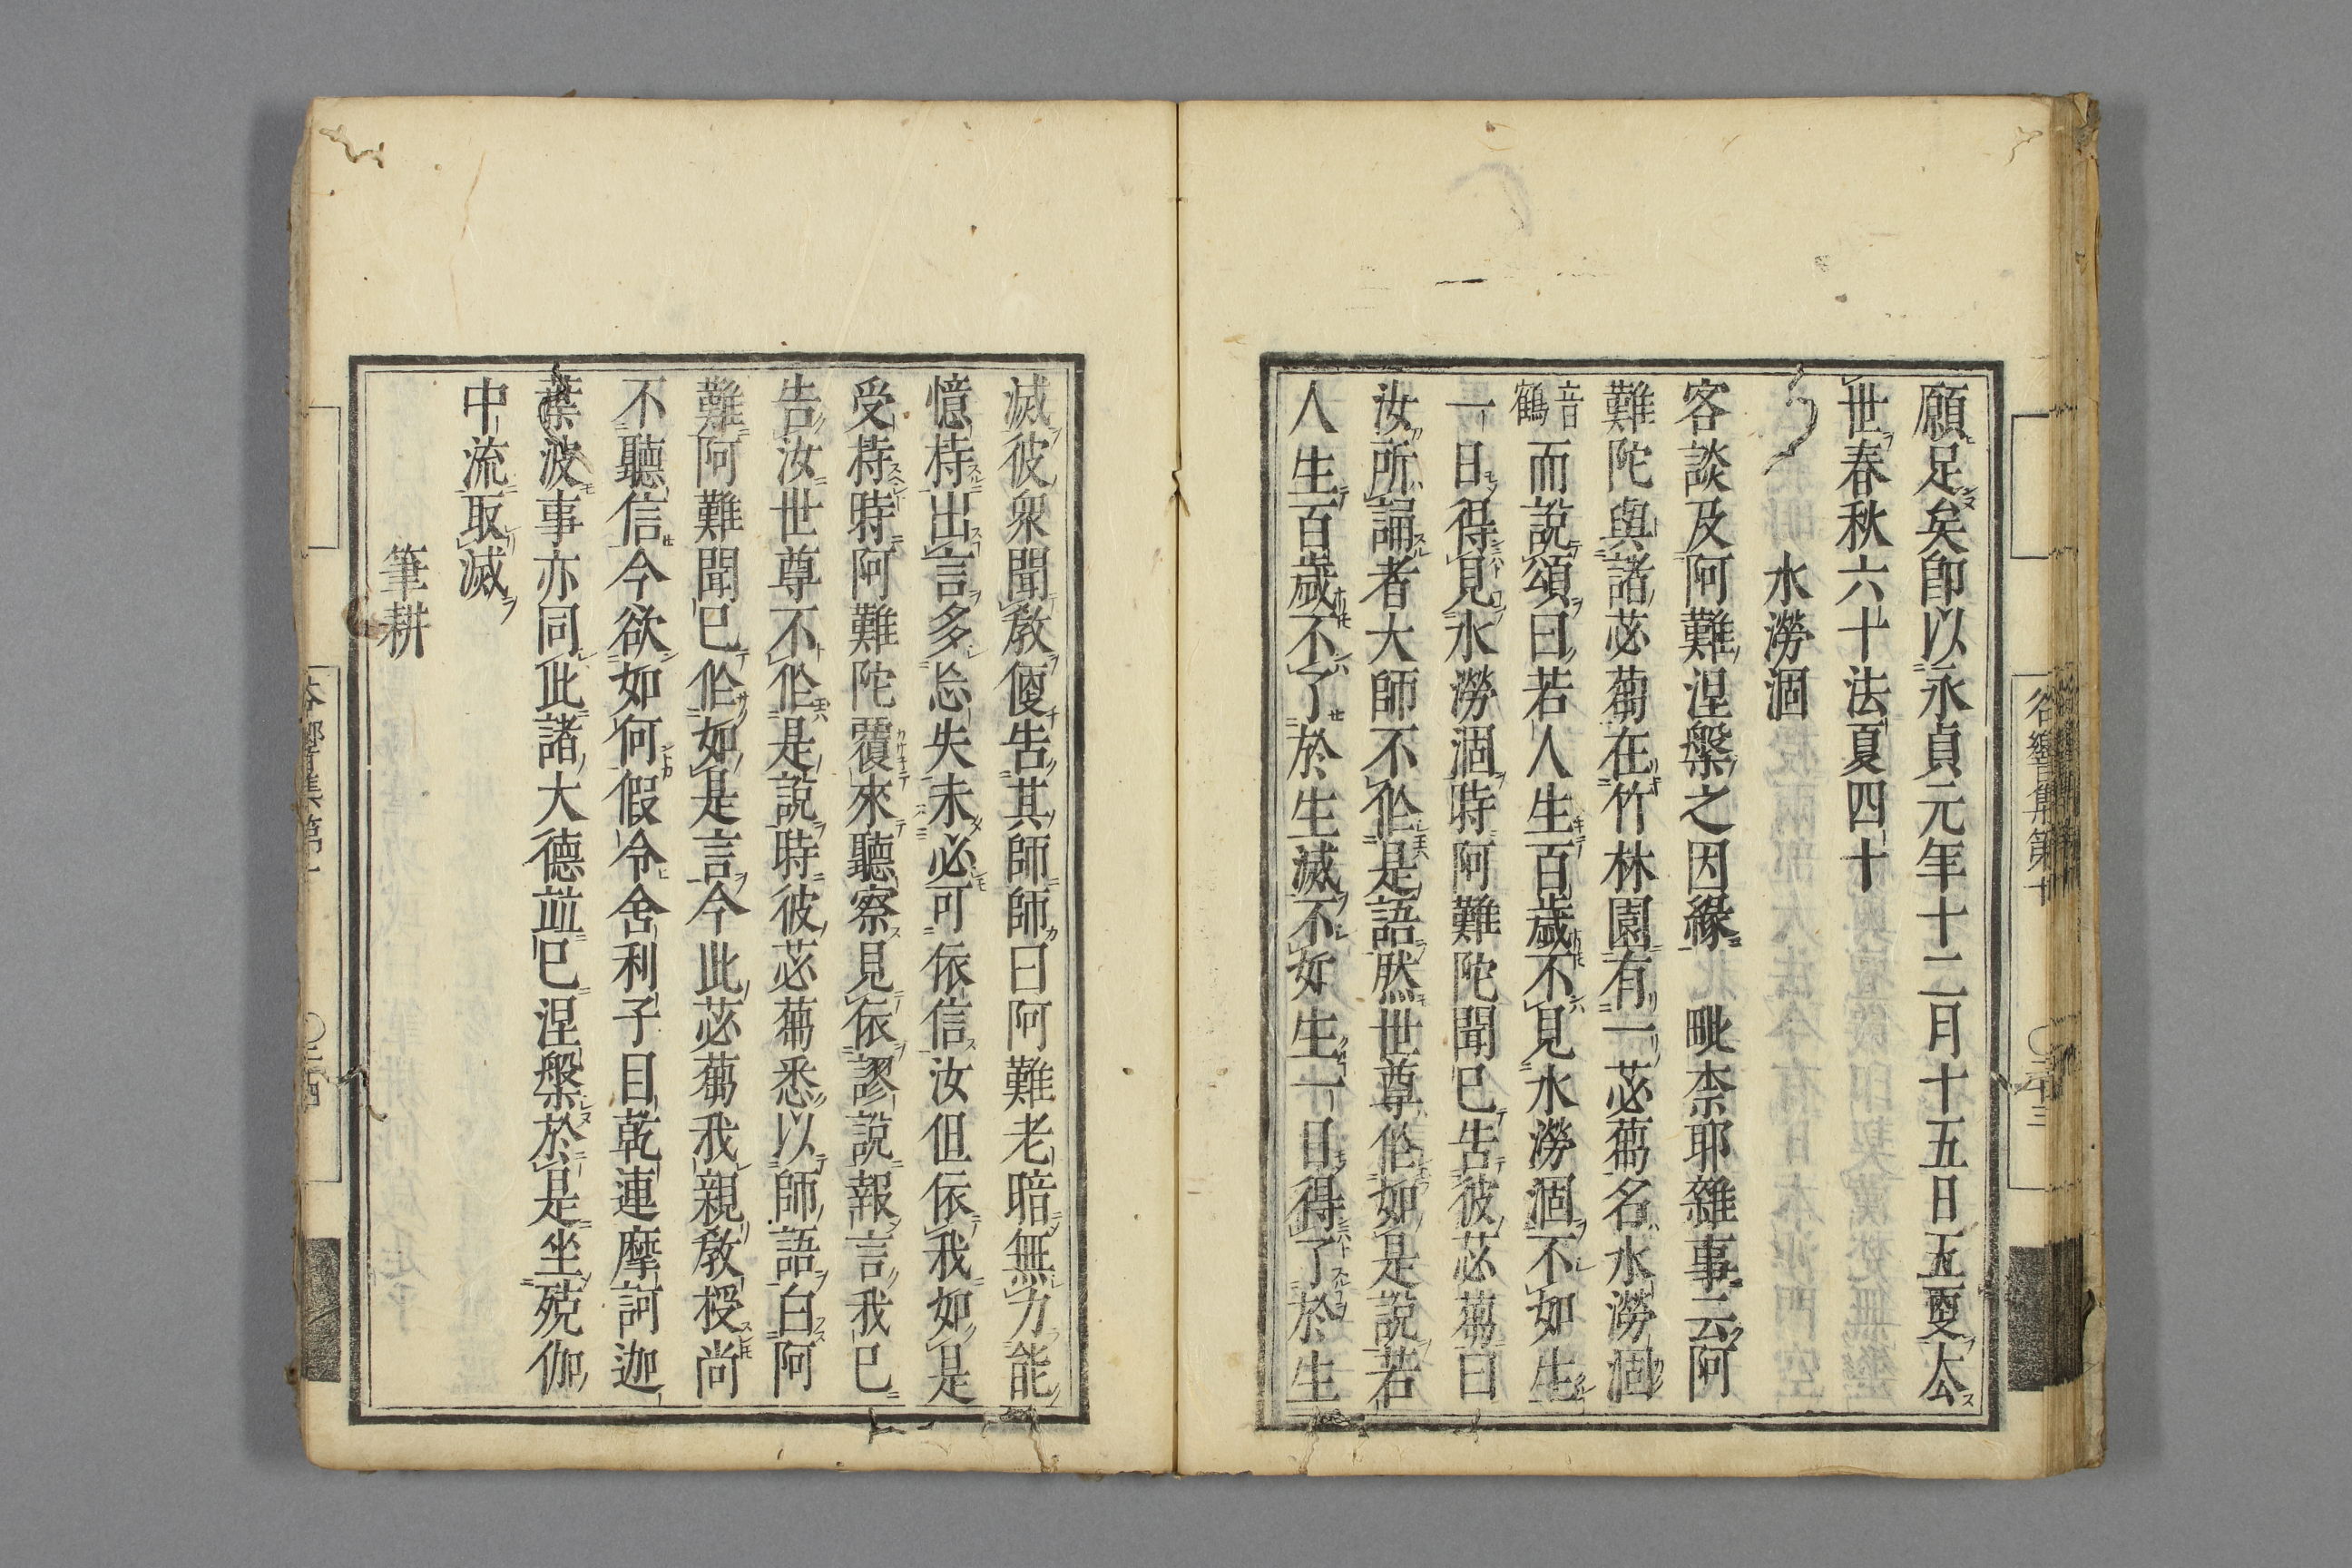 願足矣卽以永貞元年十二月十五日五更厺
世春秋六十法夏四十
水潦涸
客談及阿難涅槃之因緣 毗柰耶雜事云阿
難陀與諸苾蒭在竹林園有一苾蒭名水潦涸
音鶴而說頌曰若人生百歲不見水潦涸不如生
一日得見水潦涸時阿難陀聞已告彼苾蒭曰
汝所誦者大師不作是語然世尊作如是說若
人生百歲不了於生滅不如生一日得了於生
谷響集第十
滅彼衆聞敎便告其師師曰阿難老暗無力能
憶持出言多忘失未必可依信汝但依我如是
受持時阿難陀覆來聽察見依謬說報言我已
告汝世尊不作是說時彼苾蒭悉以師語白阿
難阿難聞已作如是言今此苾蒭我親敎授尚
不聽信今欲如何假令舍利子目乾連摩訶迦
葉波事亦同此諸大德並已涅槃於是坐殑伽
中流取滅
筆耕